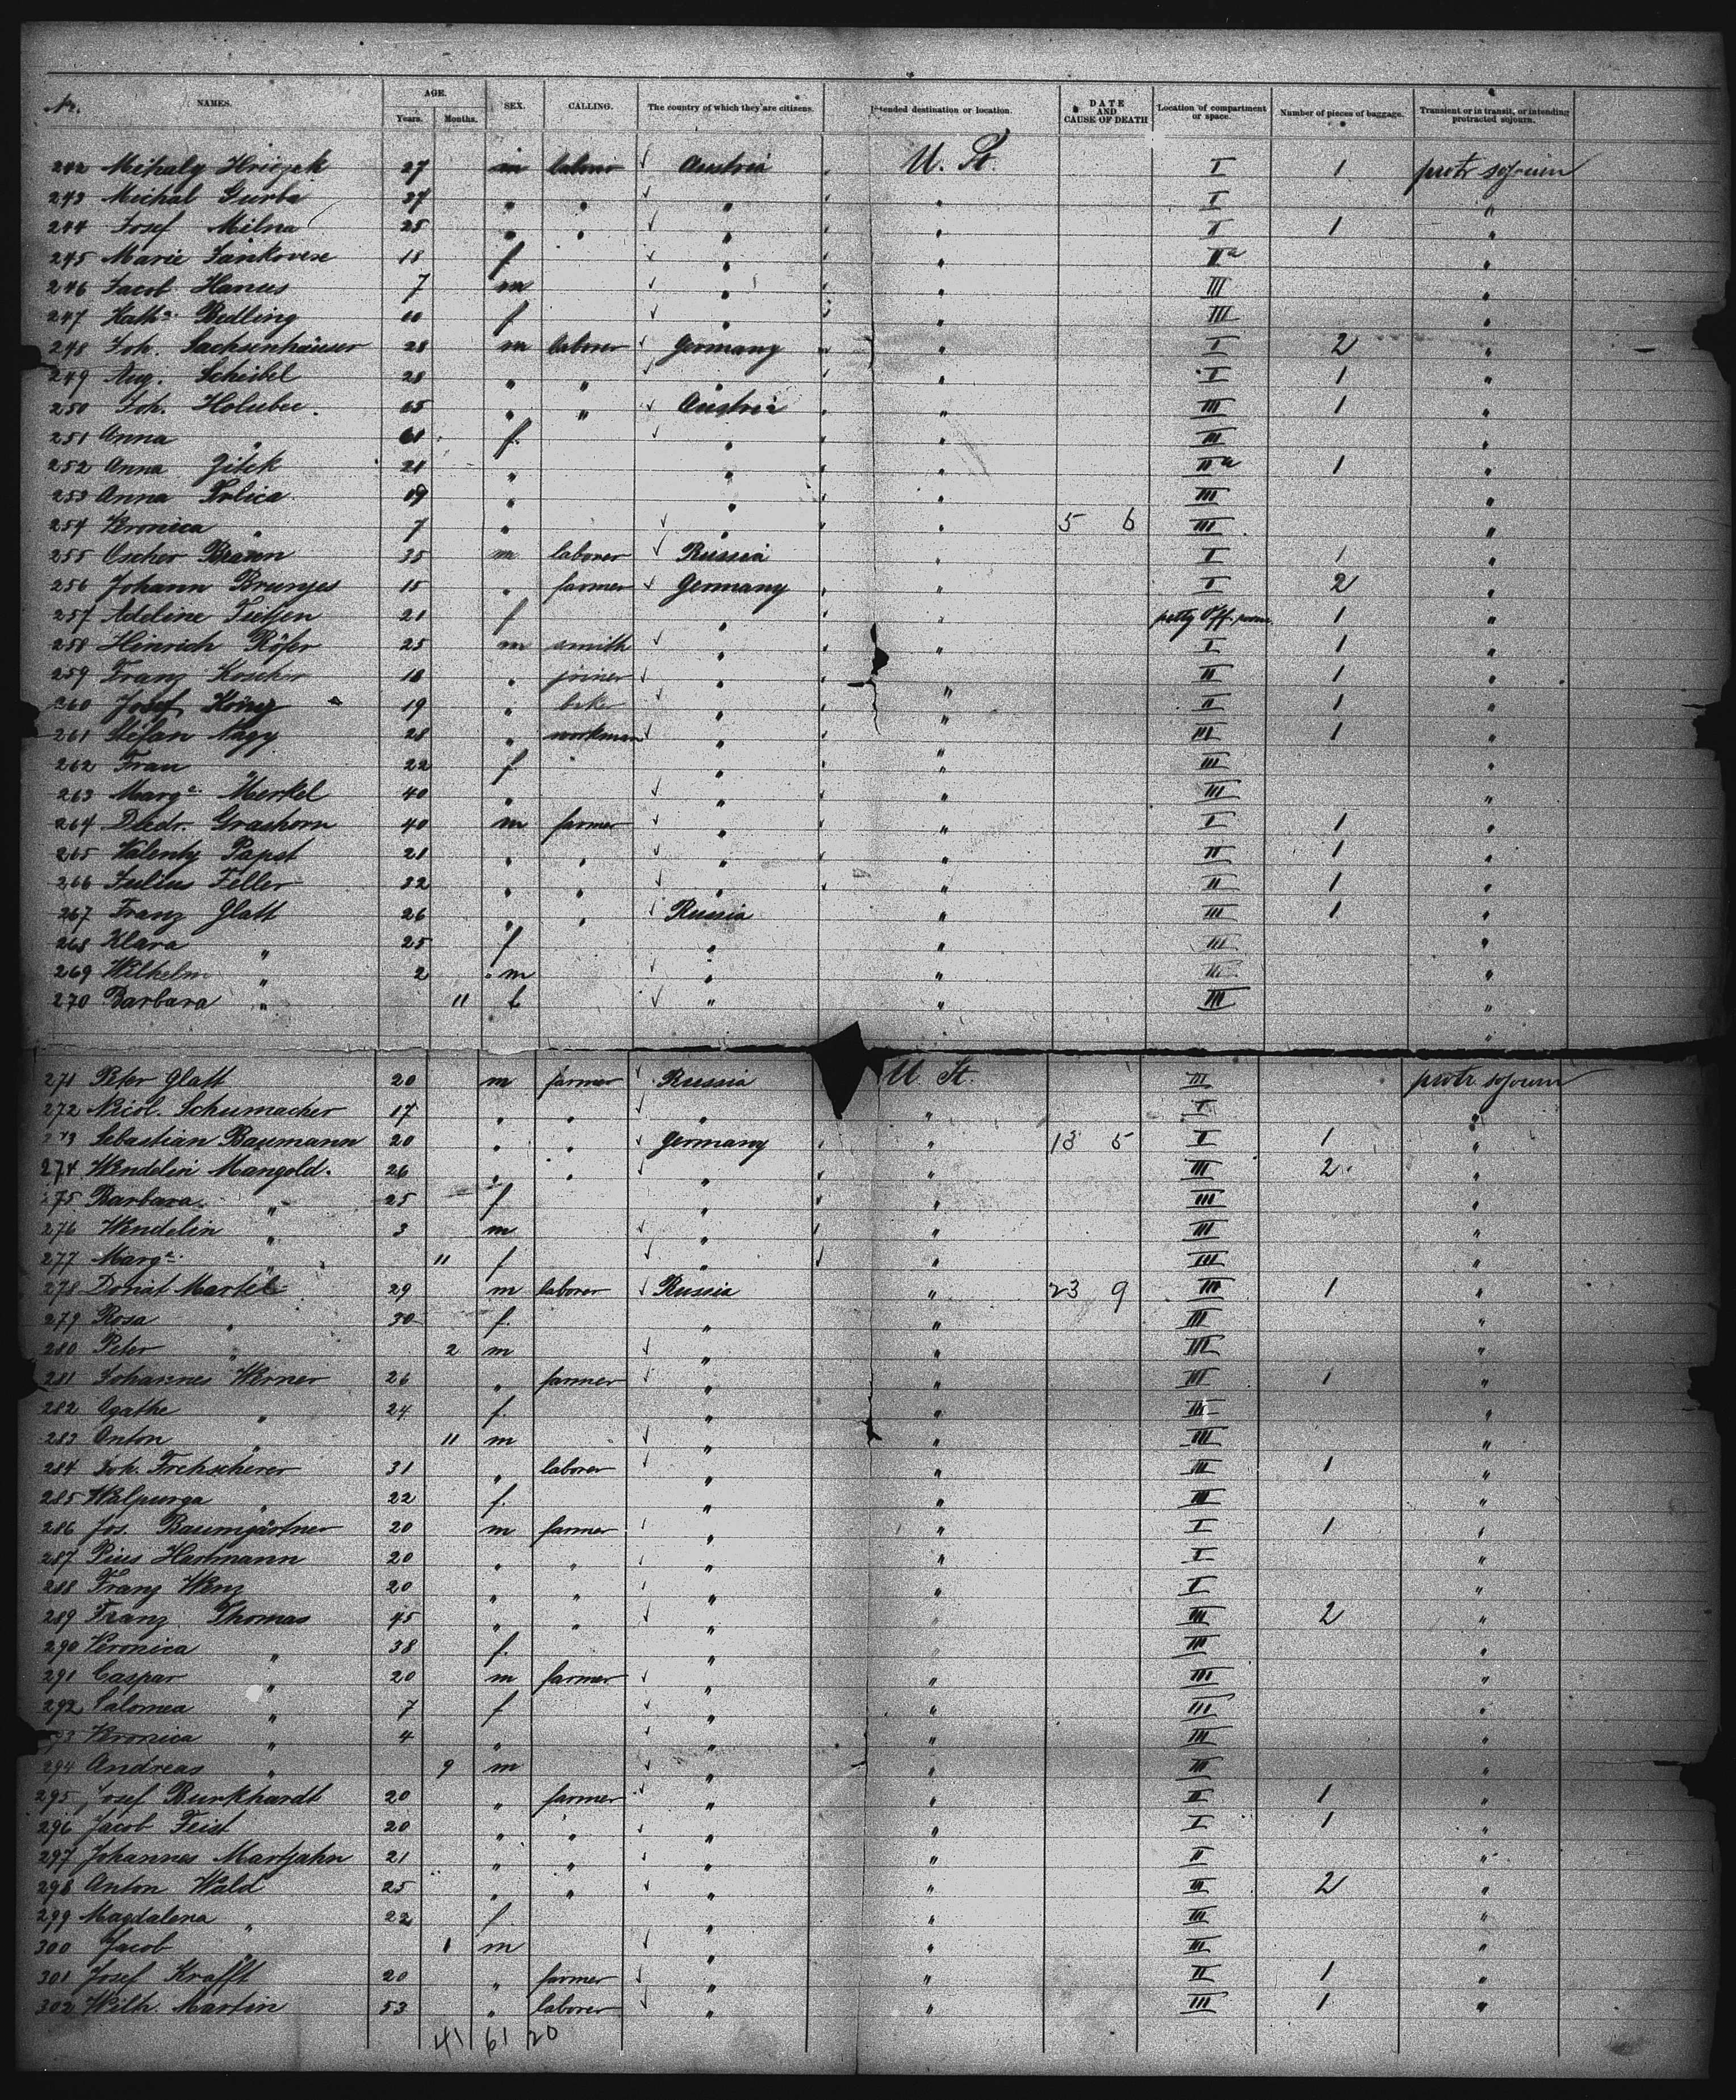 No. NAMES. AGE. Years. Months. SEX. CALLING. The country of which they are citizens. Intended destination or location. DATE AND CAUSE OF DEATH Location of compartment or space. Number of pieces of baggage. Transient or in transit, or intending protracted sojourn.
242 Mihaly 27 m laborer Austria U. St. I 1 protr sojourn
243 Michal Gurba 37 " " " " I "
244 Josef Milna 25 " " " " II 1 "
245 Marie 18 f " " IIa "
246 Jacob Hanus 7 m " " III "
247 Kath. Bedling f " " III "
248 Joh. Sachsenhäuser 28 m laborer Germany " I 2 "
249 Aug. Scheibel 28 " " " " I 1 "
250 Joh. Holubec. 65 " " Austria " III 1 "
251 Anna " 61 f. " " III "
252 Anna Zitek 21 " " " IIa 1 "
253 Anna 19 " " " III "
254 Veronica " 7 " " " 5 6 III "
255 Escher Braun 35 m laborer Russia " I 1 "
256 Johann Brunjes 15 " farmer Germany " I 2 "
257 Adeline Tietjen 21 f " " petty Off. room. 1 "
258 Hinrich Röfer 25 m smith " " I 1 "
259 Franz Koscher 18 " joiner " " II 1 "
260 Josef König 19 " " " II 1 "
261 Stefan Nagy 28 " workman " " III 1 "
262 Frau " 22 f " " III "
263 Marg. Merkel 40 " " " III "
264 Diedr. Grashorn 40 m farmer " " I 1 "
265 Valenty Papst 21 " " " " II 1 "
266 Julius Feller 32 " " " " II 1 "
267 Franz Glatt 26 " " Russia " III 1 "
268 Klara " 25 f " " III "
269 Wilhelm " 2 m " " III "
270 Barbara " 11 f " " III "
271 Peter Glatt 20 m farmer Russia U St. III protr sojourn
272 Nicol. Schumacher 17 " " " " I "
273 Sebastian Baumann 20 " " Germany " 13 5 I 1 "
274 Wendelin Mangold. 26 " " " " III 2 "
275 Barbara " 25 f " " III "
276 Wendelin " 3 m " " III "
277 Marg. " 11 f " " III "
278 Donat Martel 29 m laborer Russia " 23 9 III 1 "
279 Rosa " 30 f. " " III "
280 Peter " 2 m " " III "
281 Johannes Werner 26 " farmer " " III 1 "
282 Agathe " 24 f. " " III "
283 Anton " 11 m " " III "
284 Joh. 31 " laborer " " III 1 "
285 Walpurga " 22 f. " " III "
286 Jos. Baumgärtner 20 m farmer " " I 1 "
287 Pius Hartmann 20 " " " " I "
288 Franz Wenz 20 " " " " I "
289 Franz Thomas 45 " " " " III 2 "
290 Veronica " 38 f. " " III "
291 Caspar " 20 m farmer " " III "
292 Salomea " 7 f " " III "
293 Veronica " 4 " " " III "
294 Andreas " 9 m " " III "
295 Josef Burkhardt 20 " farmer " " II 1 "
296 Jacob Feist 20 " " " " I 1 "
297 Johannes Martjahn 21 " " " " II "
298 Anton Wald 25 " " " " III 2 "
299 Magdalena " 22 f " " III "
300 Jacob " 1 m " " III "
301 Josef Krafft 20 " farmer " " II 1 "
302 Wilh. Martin 53 " laborer " " III 1 "
41 61 20